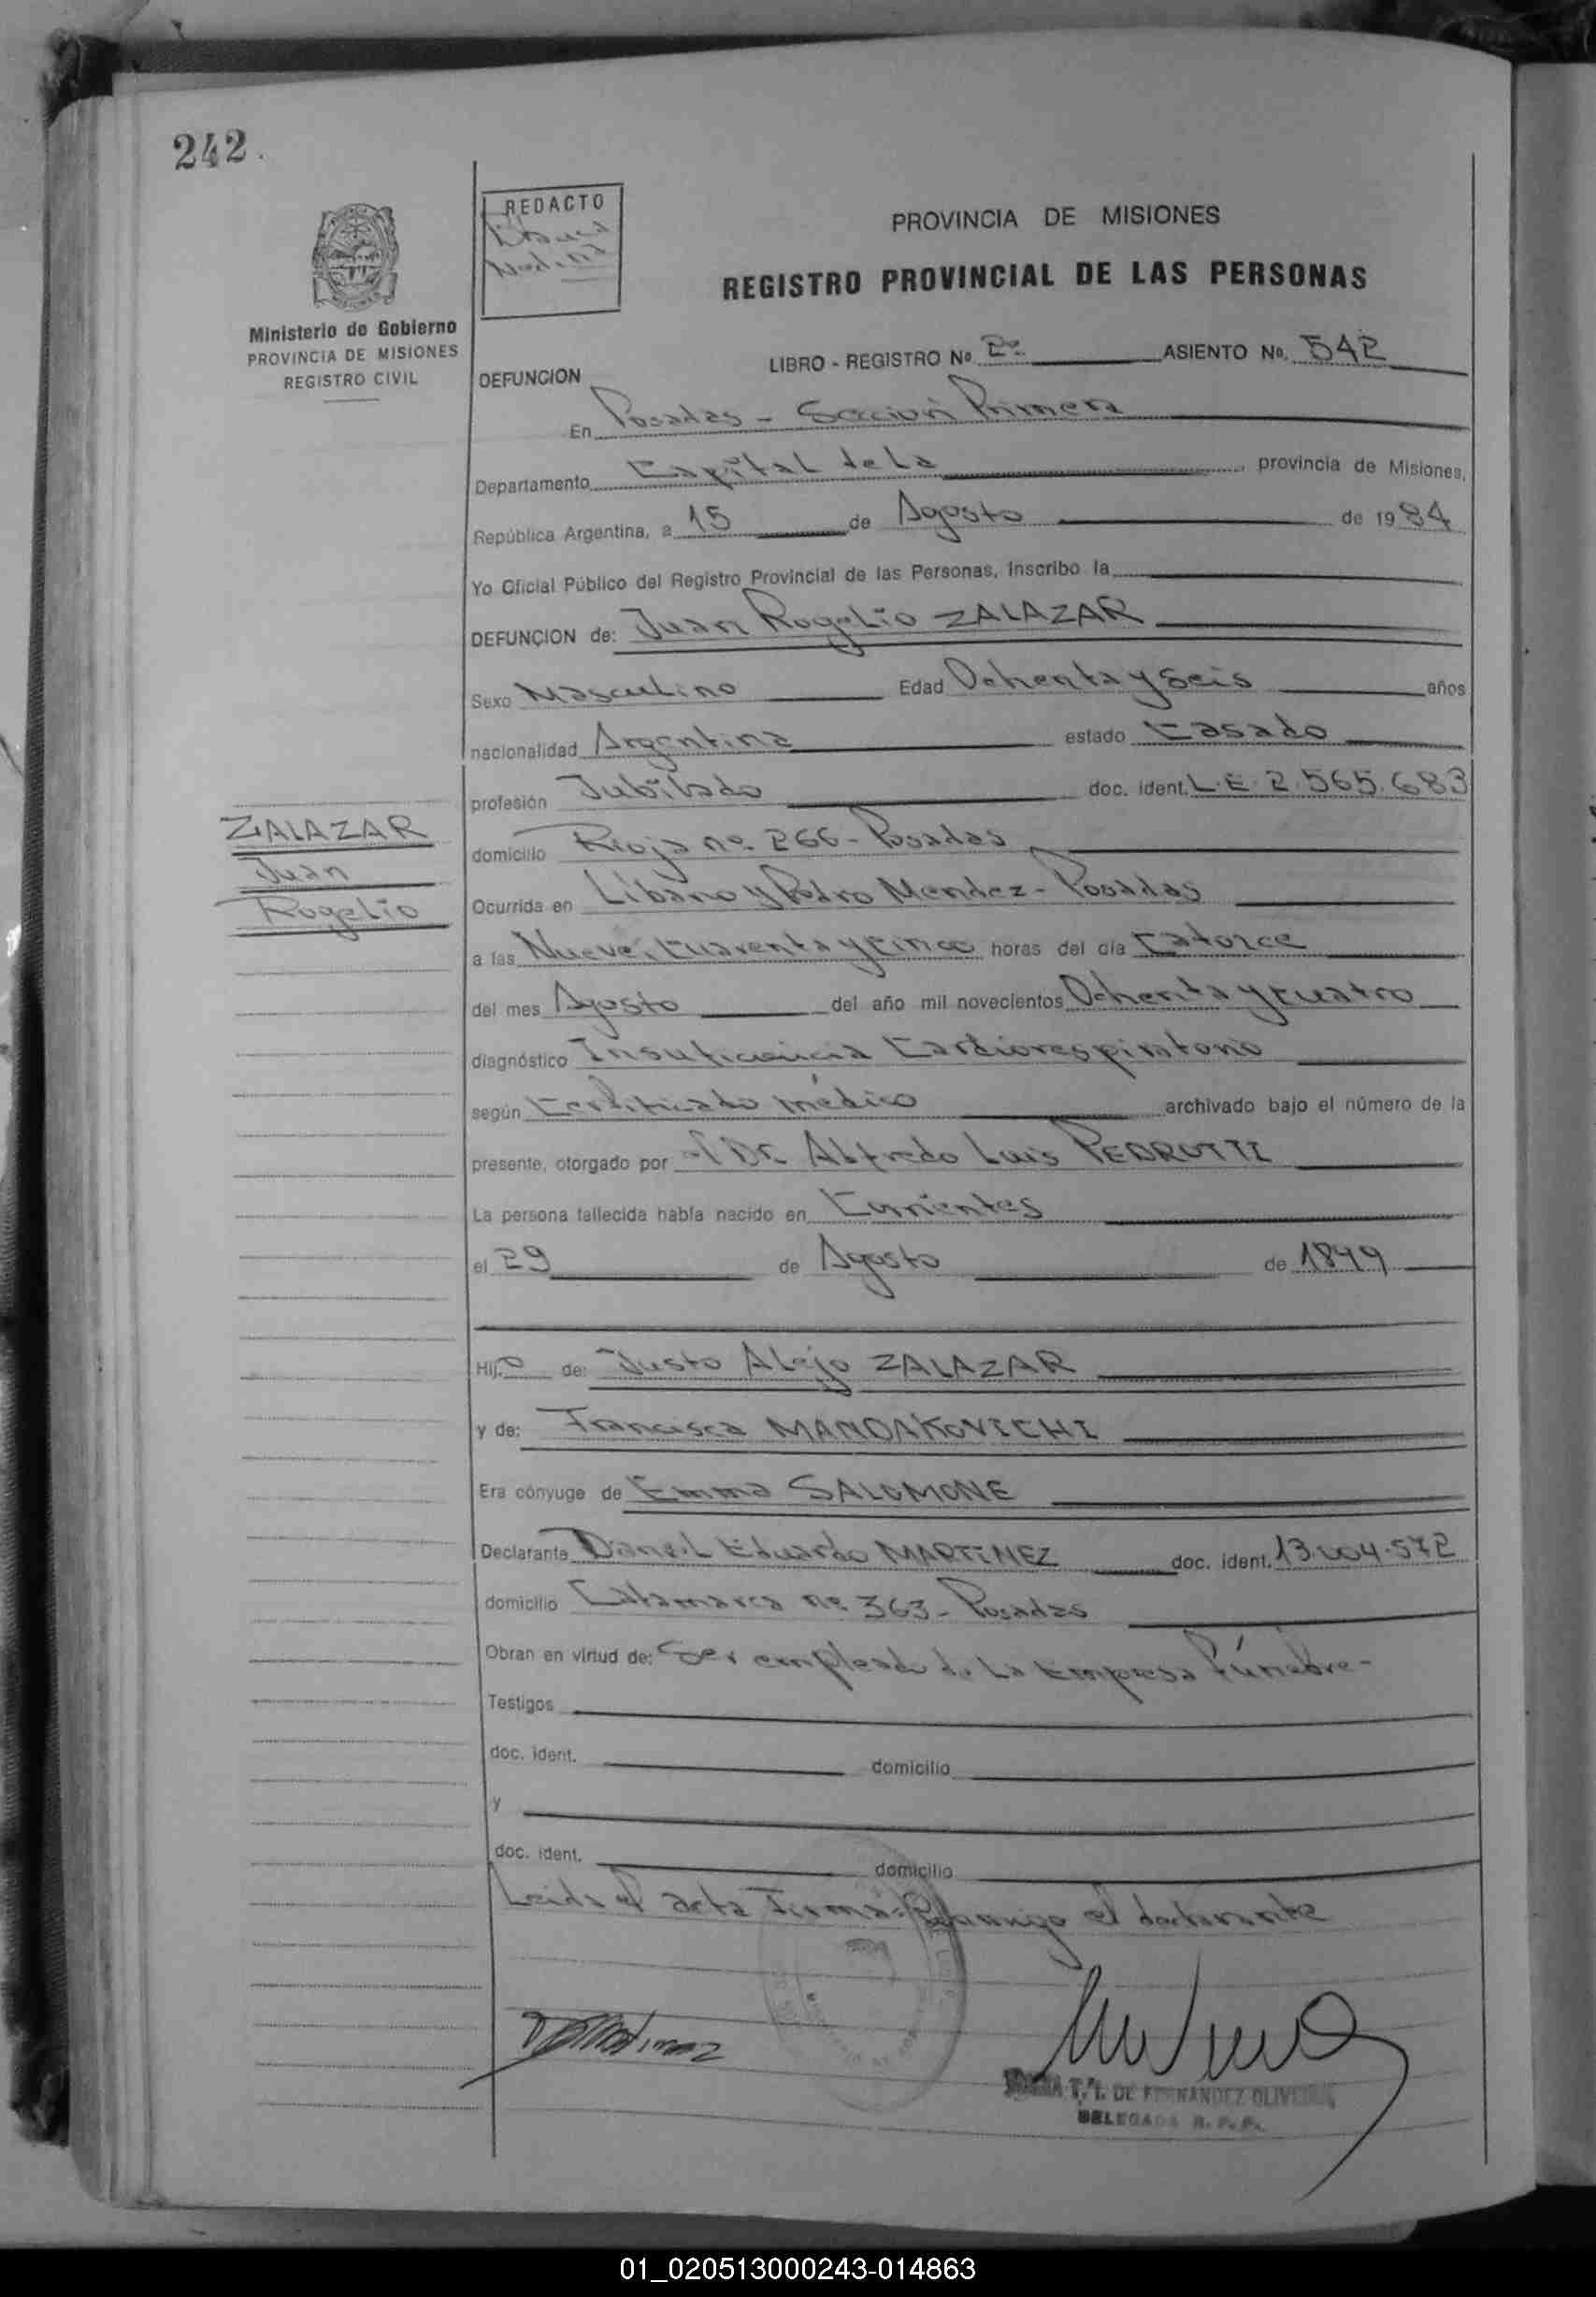 242.
REDACTO
PROVINCIA DE MISIONES
REGISTRO PROVINCIAL DE LAS PERSONAS
Ministerio de Gobierno
PROVINCIA DE MISIONES
REGISTRO CIVIL
LIBRO - REGISTRO Nº 2º ASIENTO Nº. 542
DEFUNCION
En Posadas - Sección Primera
Departamento Capital de la, provincia de Misiones,
República Argentina, a 15 de Agosto de 1984
Yo Oficial Público del Registro Provincial de las Personas, inscribo la
DEFUNCION de: Juan Rogelio ZALAZAR
Sexo Masculino Edad Ochenta y Seis años
nacionalidad Argentina estado Casado
profesión Jubilado doc. ident. L.E. 2.565.683
ZALAZAR
Juan
Rogelio
domicilio Rioja nº 266 - Posadas
Ocurrida en Líbano y Pedro Mendez - Posadas
a las Nueve, Cuarenta y cinco horas del día Catorce
del mes Agosto del año mil novecientos Ochenta y cuatro
diagnóstico Insuficiencia Cardiorespiratorio
según Certificado médico archivado bajo el número de la
presente, otorgado por el Dr. Alfredo Luis PEDRUTTI
La persona fallecida había nacido en Corrientes
el 29 de Agosto de
Hijo de: Justo Alejo ZALAZAR
y de: Francisca MANDAKOVICHI
Era cónyuge de Emma SALOMONE
Declarante Daniel Eduardo MARTINEZ doc. ident. 13.004.572
domicilio Catamarca nº 363 - Posadas
Obran en virtud de: Ser empleado de la Empresa Fúnebre -
Testigos
doc. ident. domicilio
y
doc. ident. domicilio
Leida el acta Firma conmigo el declarante
T. I. DE FERNANDEZ OLIVEIRA
DELEGADA R. P. P.
01_020513000243-014863